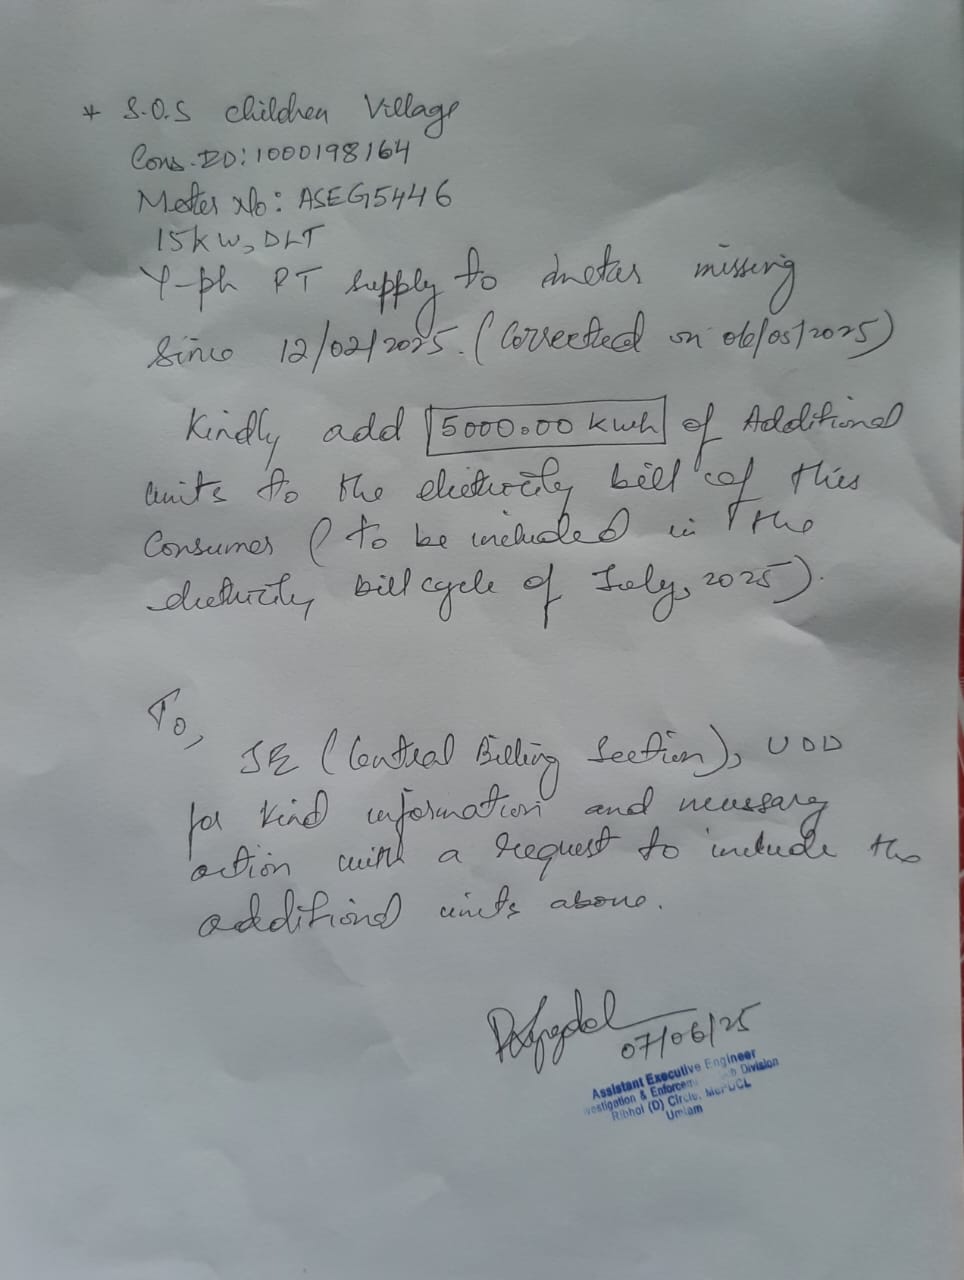 * S.O.S Children Village
Cons. ID: 1000198164
Meter No: ASEG5446
15kW, DLT
Y-ph PT supply to meter missing
Since 12/02/2025. (Corrected on 06/05/2025)
Kindly add 5000.00 kwh of Additional
units to the electricity bill of this
Consumer (to be included in the
electricity bill cycle of July, 2025).
To,
JE (Central Billing Section), UDD
for kind information and necessary
action with a request to include the
additional units above.
07/06/25
Assistant Executive Engineer
& Division
(D) Circle, MePDCL
Umiam